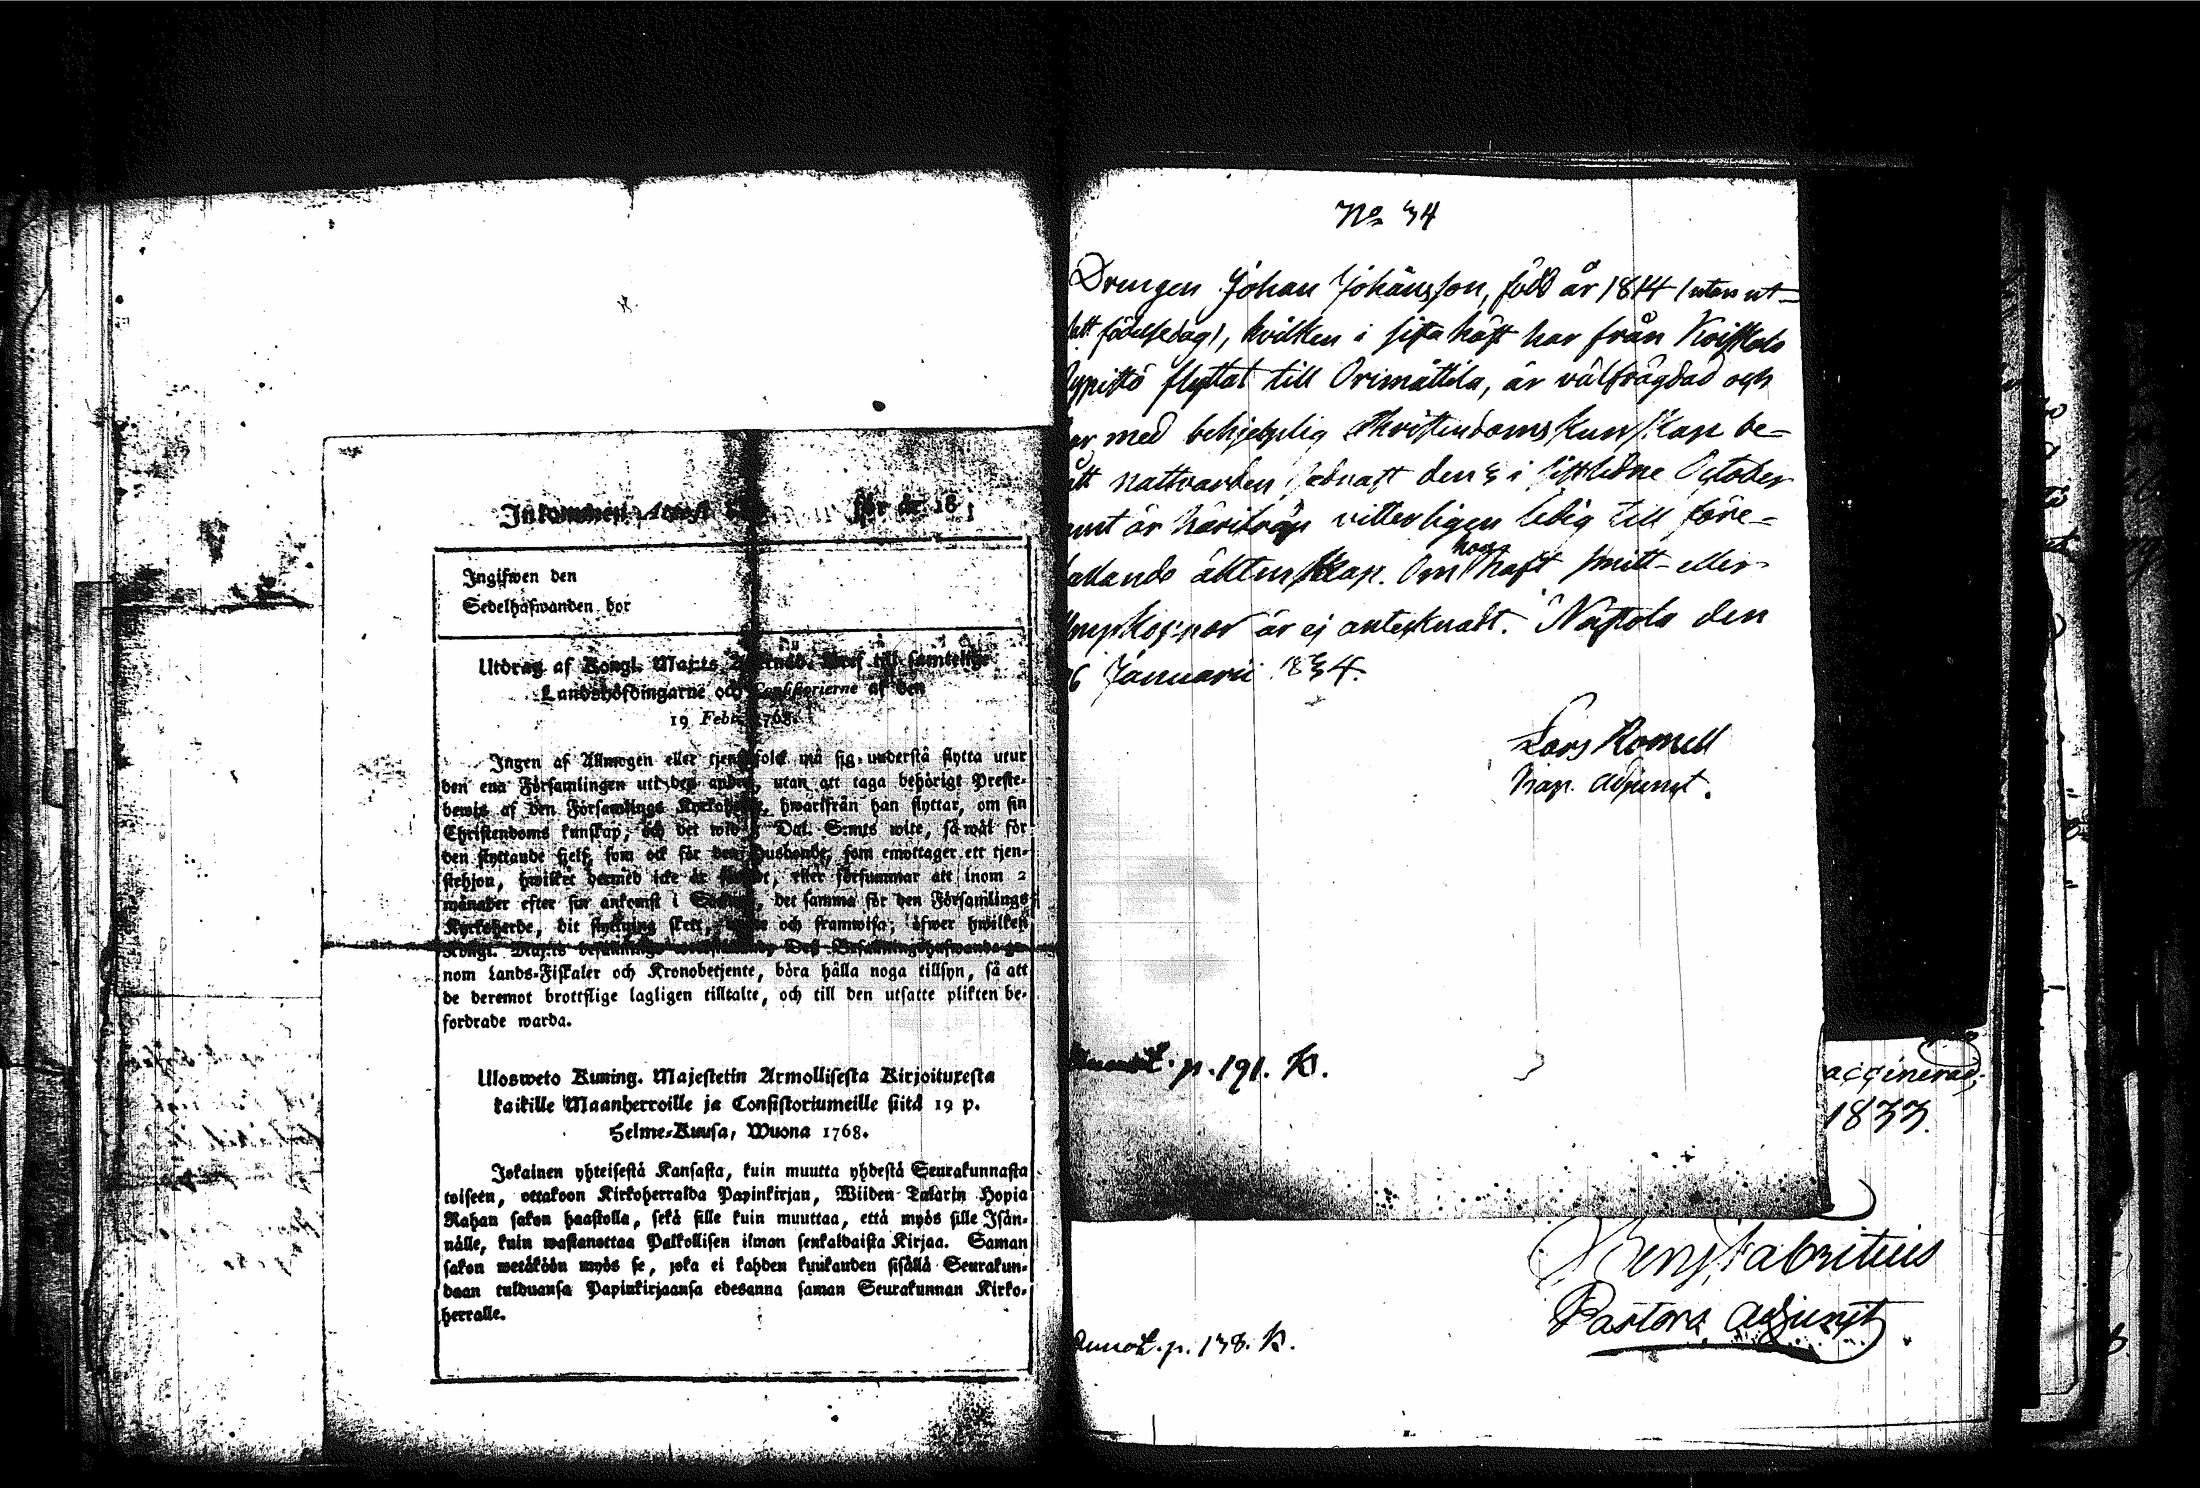 Inkommen Attest för år 18
Ingifwen den
Sedelhafwanden bor
Utdrag af Kongl. Maj:ts Bref till samtelige
Landshöfdingarne och Consistorierne af den
19 Febr. 1768.
Ingen af Allmogen eller tjenstefolk må sig understå flytta utur
den ena Församlingen uti den andra, utan att taga behörigt Preste-
bewis af den Församlings Kyrkoherde, hwarifrån han flyttar, om sin
Christendoms kunskap, och det wid 5 Dal. S:mts wite, så wäl för
den flyttande sjelf, som ock för den Husbonde, som emottager ett tjen-
stehjon, hwilket dermed icke är försedt, eller försummar att inom 2
månader efter sin ankomst i Socknen, det samma för den Församlings
Kyrkoherde, dit flyttning skett, och framwisa; öfwer hwilket
Kongl. Maj:ts Befallningshafwande ge-
nom Lands-Fiskaler och Kronobetjente, böra hålla noga tillsyn, så att
de deremot brottslige lagligen tilltalte, och till den utsatte plikten be-
fordrade warda.
Ulosweto Kuning. Majestetin Armollisesta Kirjoituxesta
kaikille Maanherroille ja Consistoriumeille siitä 19 p.
Helme-Kuusa, Wuona 1768.
Jokainen yhteisestä Kansasta, kuin muutta yhdestä Seurakunnasta
toiseen, ottakoon Kirkoherralda Papinkirjan, Wiiden Talarin Hopia
Rahan sakon haastolla, sekä sille kuin muuttaa, että myös sille Isän-
nälle, kuin wastanottaa Palkollisen ilman senkaldaista Kirjaa. Saman
sakon wetäköön myös se, joka ei kahden kuukauden sisällä Seurakun-
daan tulduansa Papinkirjaansa edesanna saman Seurakunnan Kirko-
herralle.
No 34
Drengen Johan Johansson, född år 1814 (utan ut-
satt födelsedag), hvilken i sista höst har från Koiskala
flyttat till Orimattila, är välfrägdad och
har med behjelplig Christendoms kunskap be-
gått nattvarden sednast den 3 i sistledne October
samt är härifrån vitterligen ledig till före-
fallande äktenskap. Om han haft smitt- eller
kåppor är ej antecknadt. Nastola den
6 Januarii 1834.
Lars Romell
Kap. Adjunct.
Annot. p. 191. K.
accinerad;
1833.
Benj Fabritius
Pastors Adjunct
Annot. p. 138. K.